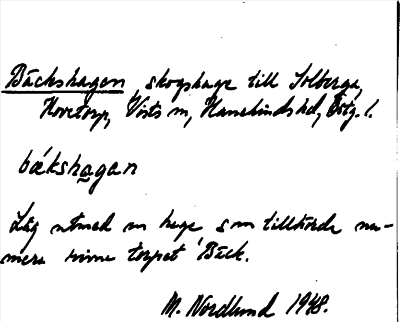 Bäckshagen, skogshage till Solberga,
Hovetorp, Vists sn, Hanekinds hd, Östg. l.
bækshagan
Låg utmed en hage som tillhörde nu-
mera rivna torpet Bäck.
M. Nordlund 1948.